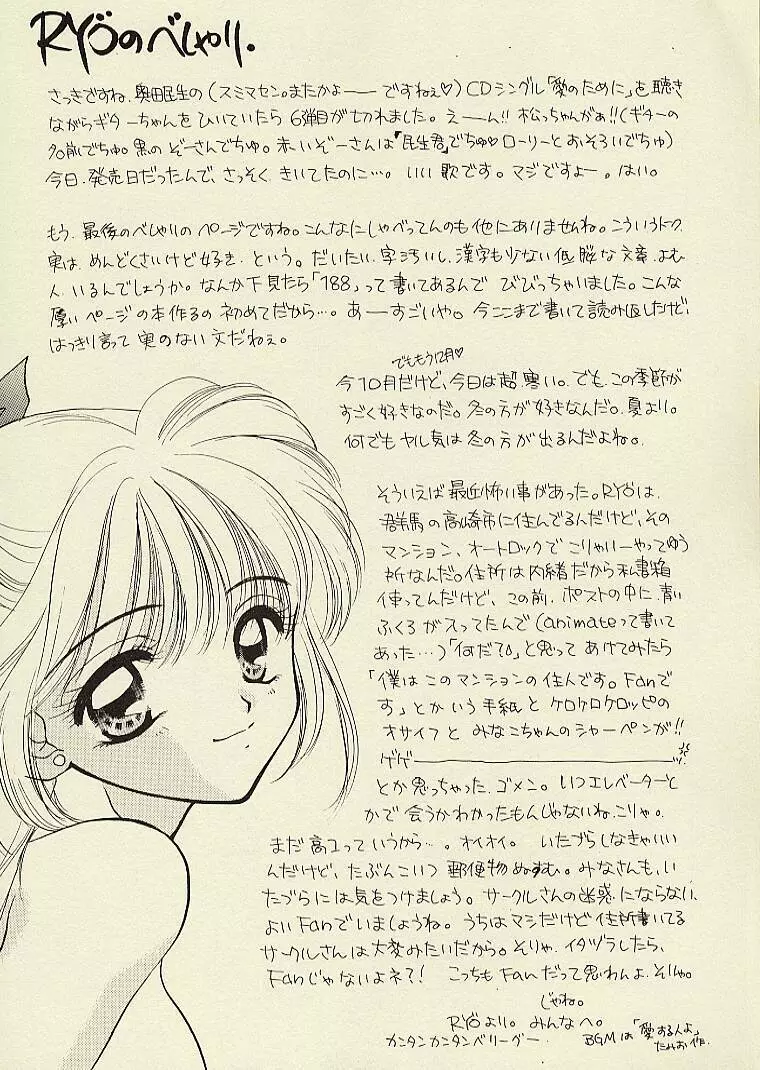 RYÖのべしゃり.
さっきですね、奥田民生の(スミマセン。またかよーー ですねぇ♡)CDシングル「愛のために」を聴き
ながらギターちゃんをひいていたら 6弾目が切れました。えーん!! 松っちゃんがぁ!!(ギターの
名前でちゅ。黒の ぞーさんでちゅ。赤いぞーさんは「民生君」でちゅ♡ローリーとおそろいでちゅ)
今日、発売日だったんで、さっそく きいてたのに…。いい歌です。マジですよー。はい。
もう、最後のべしゃりの ページですね。こんなにしゃべってんのも他にありませんね。こういうトーク
実は、めんどくさいけど好き、という。だいたい、字汚いし、漢字も少ない低脳な文章、よむ
人、いるんでしょうか。なんか下見たら「188」って書いてあるんで びびっちゃいました。こんな
厚いページの本作るの 初めてだから…。あーーすごいや。今ここまで書いて読み返したけど、
はっきり言って 実のない文だねぇ。
でももう12月♡
今10月だけど、今日は超、寒い。でも、この季節が
すごく好きなのだ。冬の方が好きなんだ。夏より。
何でもヤル気は冬の方が出るんだよね。
そういえば最近怖い事があった。RYÖは、
群馬の高崎市に住んでるんだけど、その
マンション、オートロックで こりゃいーやってゆう
所なんだ。住所は内緒だから私書箱
使ってんだけど、この前、ポストの中に、青い
ふくろが入ってたんで(animateって書いて
あった…)「何だて」と思って あけてみたら
「僕はこのマンションの住人です。Fanで
す」とかいう手紙と ケロケロケロッピの
オサイフと みなこちゃんのシャーペンが!!
ゲゲー
とか思っちゃった、ゴメン。いつエレベーターと
かで 会うかわかったもんじゃないね、こりゃ。
まだ高1っていうから…。オイオイ。いたづらしなきゃいい
んだけど、たぶんこいつ 郵便物ぬすむ。みなさんも、い
たづらには気をつけましょう。サークルさんの迷惑にならない、
よいFanでいましょうね。うちはマシだけど住所書いてる
サークルさんは大変みたいだから。そりゃ、イタヅラしたら、
Fanじゃないよネ?! こっちも Fanだって思わんよ、そりゃ。
じゃね。
RYÖより。みんなへ。
カンタンカンタンベリーグー.
BGMは「愛する人よ」
たみお作.